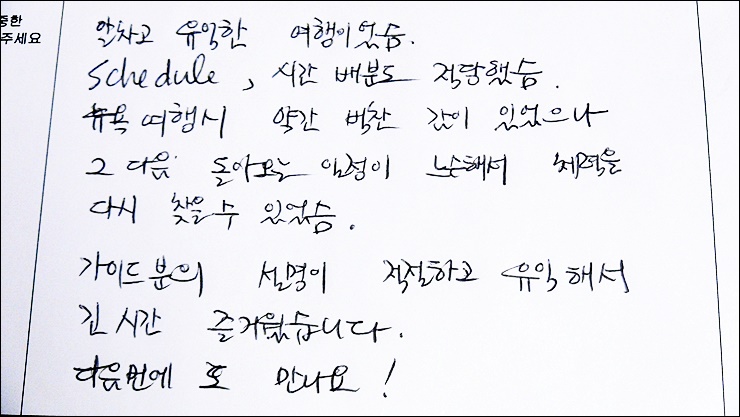 중한
주세요
알차고 유익한 여행이었슴.
Schedule, 시간 배분도 적당했슴.
뉴욕 여행시 약간 벅찬 감이 있었으나
그 다음 돌아오는 일정이 느슨해서 체력을
다시 찾을 수 있었슴.
가이드 분의 설명이 적절하고 유익해서
긴 시간 즐거웠습니다.
다음번에 또 만나요!